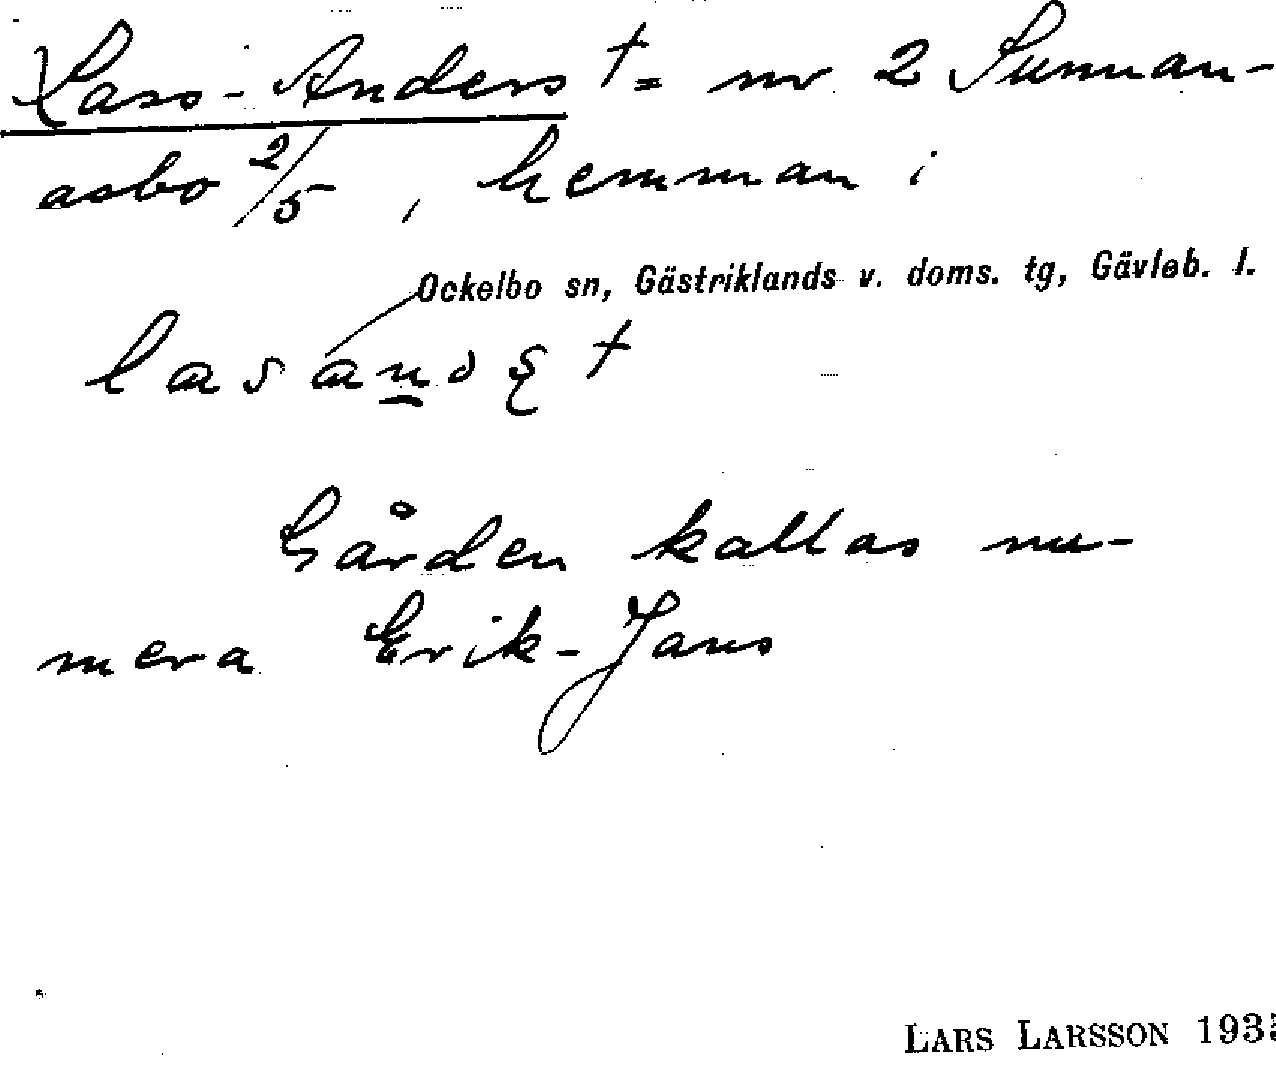 Lars-Anders † = nr 2 Sunnan-
åsbo 2/5, hemman i
Ockelbo sn, Gästriklands v. doms. tg, Gävleb. l.
Gården kallas nu-
mera Erik-Jans
LARS LARSSON